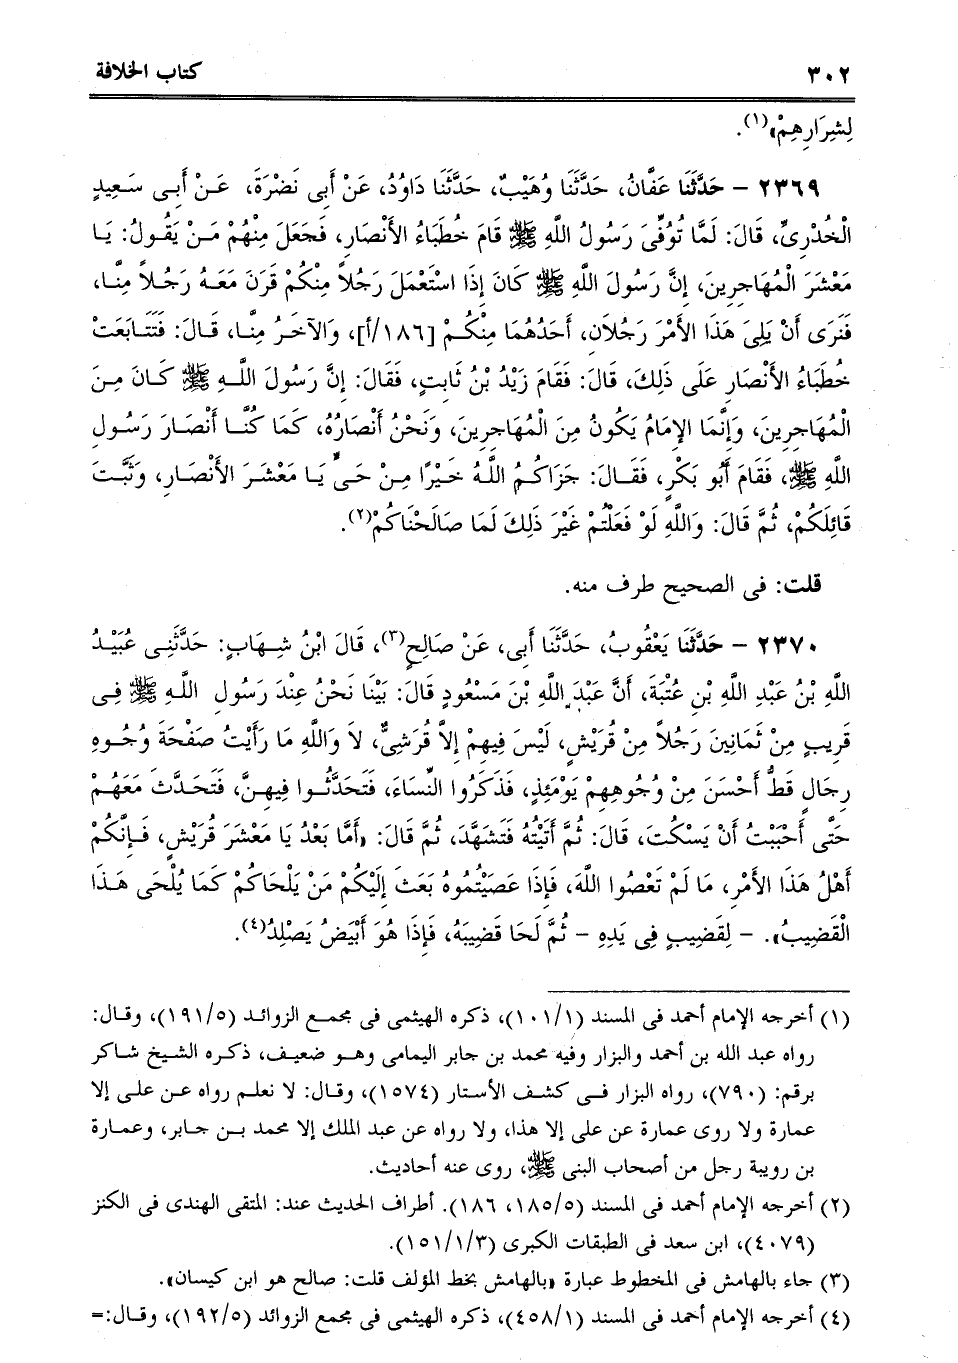 ٣٠٢ كتاب الخلافة
لِشِرَارِهِمْ»(١).
٢٣٦٩ – حَدَّثَنَا عَفَّانُ، حَدَّثَنَا وُهَيْبٌ، حَدَّثَنَا دَاوُدُ، عَنْ أَبِى نَضْرَةَ، عَنْ أَبِى سَعِيدٍ
الْخُدْرِىِّ، قَالَ: لَمَّا تُوُفِّىَ رَسُولُ اللَّهِ ﷺ قَامَ خُطَبَاءُ الأَنْصَارِ، فَجَعَلَ مِنْهُمْ مَنْ يَقُولُ: يَا
مَعْشَرَ الْمُهَاجِرِينَ، إِنَّ رَسُولَ اللَّهِ ﷺ كَانَ إِذَا اسْتَعْمَلَ رَجُلاً مِنْكُمْ قَرَنَ مَعَهُ رَجُلاً مِنَّا،
فَنَرَى أَنْ يَلِىَ هَذَا الأَمْرَ رَجُلاَنِ، أَحَدُهُمَا مِنْكُمْ [١٨٦/أ]، وَالآخَرُ مِنَّا، قَالَ: فَتَتَابَعَتْ
خُطَبَاءُ الأَنْصَارِ عَلَى ذَلِكَ، قَالَ: فَقَامَ زَيْدُ بْنُ ثَابِتٍ، فَقَالَ: إِنَّ رَسُولَ اللَّهِ ﷺ كَانَ مِنَ
الْمُهَاجِرِينَ، وَإِنَّمَا الإِمَامُ يَكُونُ مِنَ الْمُهَاجِرِينَ، وَنَحْنُ أَنْصَارُهُ، كَمَا كُنَّا أَنْصَارَ رَسُولِ
اللَّهِ ﷺ، فَقَامَ أَبُو بَكْرٍ، فَقَالَ: جَزَاكُمُ اللَّهُ خَيْرًا مِنْ حَىٍّ يَا مَعْشَرَ الأَنْصَارِ، وَثَبَّتَ
قَائِلَكُمْ، ثُمَّ قَالَ: وَاللَّهِ لَوْ فَعَلْتُمْ غَيْرَ ذَلِكَ لَمَا صَالَحْنَاكُمْ(٢).
قلت: فى الصحيح طرف منه.
٢٣٧٠ – حَدَّثَنَا يَعْقُوبُ، حَدَّثَنَا أَبِى، عَنْ صَالِحٍ(٣)، قَالَ ابْنُ شِهَابٍ: حَدَّثَنِى عُبَيْدُ
اللَّهِ بْنُ عَبْدِ اللَّهِ بْنِ عُتْبَةَ، أَنَّ عَبْدَ اللَّهِ بْنَ مَسْعُودٍ قَالَ: بَيْنَا نَحْنُ عِنْدَ رَسُولِ اللَّهِ ﷺ فِى
قَرِيبٍ مِنْ ثَمَانِينَ رَجُلاً مِنْ قُرَيْشٍ، لَيْسَ فِيهِمْ إِلاَّ قُرَشِىٌّ، لاَ وَاللَّهِ مَا رَأَيْتُ صَفْحَةَ وُجُوهِ
رِجَالٍ قَطُّ أَحْسَنَ مِنْ وُجُوهِهِمْ يَوْمَئِذٍ، فَذَكَرُوا النِّسَاءَ، فَتَحَدَّثُوا فِيهِنَّ، فَتَحَدَّثَ مَعَهُمْ
حَتَّى أَحْبَبْتُ أَنْ يَسْكُتَ، قَالَ: ثُمَّ أَتَيْتُهُ فَتَشَهَّدَ، ثُمَّ قَالَ: «أَمَّا بَعْدُ يَا مَعْشَرَ قُرَيْشٍ، فَإِنَّكُمْ
أَهْلُ هَذَا الأَمْرِ، مَا لَمْ تَعْصُوا اللَّهَ، فَإِذَا عَصَيْتُمُوهُ بَعَثَ إِلَيْكُمْ مَنْ يَلْحَاكُمْ كَمَا يُلْحَى هَذَا
الْقَضِيبُ». – لِقَضِيبٍ فِى يَدِهِ – ثُمَّ لَحَا قَضِيبَهُ، فَإِذَا هُوَ أَبْيَضُ يَصْلِدُ(٤).
(١) أخرجه الإمام أحمد فى المسند (١٠١/١)، ذكره الهيثمى فى مجمع الزوائد (١٩١/٥)، وقال:
رواه عبد الله بن أحمد والبزار وفيه محمد بن جابر اليمامى وهو ضعيف، ذكره الشيخ شاكر
برقم: (٧٩٠)، رواه البزار فى كشف الأستار (١٥٧٤)، وقال: لا نعلم رواه عن على إلا
عمارة ولا روى عمارة عن على إلا هذا، ولا رواه عن عبد الملك إلا محمد بن جابر، وعمارة
بن رويبة رجل من أصحاب النبى ﷺ، روى عنه أحاديث.
(٢) أخرجه الإمام أحمد فى المسند (١٨٥/٥، ١٨٦). أطراف الحديث عند: المتقى الهندى فى الكنز
(٤٠٧٩)، ابن سعد فى الطبقات الكبرى (١٥١/١/٣).
(٣) جاء بالهامش فى المخطوط عبارة «بالهامش بخط المؤلف قلت: صالح هو ابن كيسان».
(٤) أخرجه الإمام أحمد فى المسند (٤٥٨/١)، ذكره الهيثمى فى مجمع الزوائد (١٩٢/٥)، وقال:=